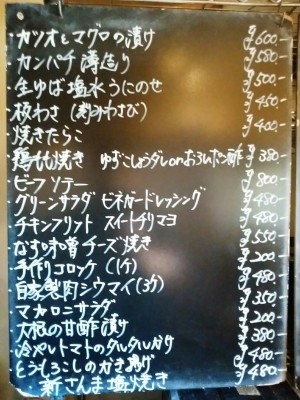 ・カツオとマグロの漬け ¥600-
・カンパチ薄造り ¥580-
・生ゆば塩水うにのせ ¥500-
・板わさ (刻みわさび) ¥450-
・焼きたらこ ¥400-
・鶏もも焼き ゆずこしょうダレorおろしポン酢 ¥380-
・ビーフソテー ¥800-
・グリーンサラダ ビネガードレッシング ¥480-
・チキンフリット スイートチリマヨ ¥480-
・なす味噌チーズ焼き ¥550-
・手作りコロッケ (1ケ) ¥200-
・自家製肉シウマイ (3ケ) ¥480-
・マカロニサラダ ¥350-
・大根の甘酢漬け ¥200-
・冷やしトマトのタルタルがけ ¥380-
・とうもろこしのかき揚げ ¥480-
・新さんま塩焼き ¥480-